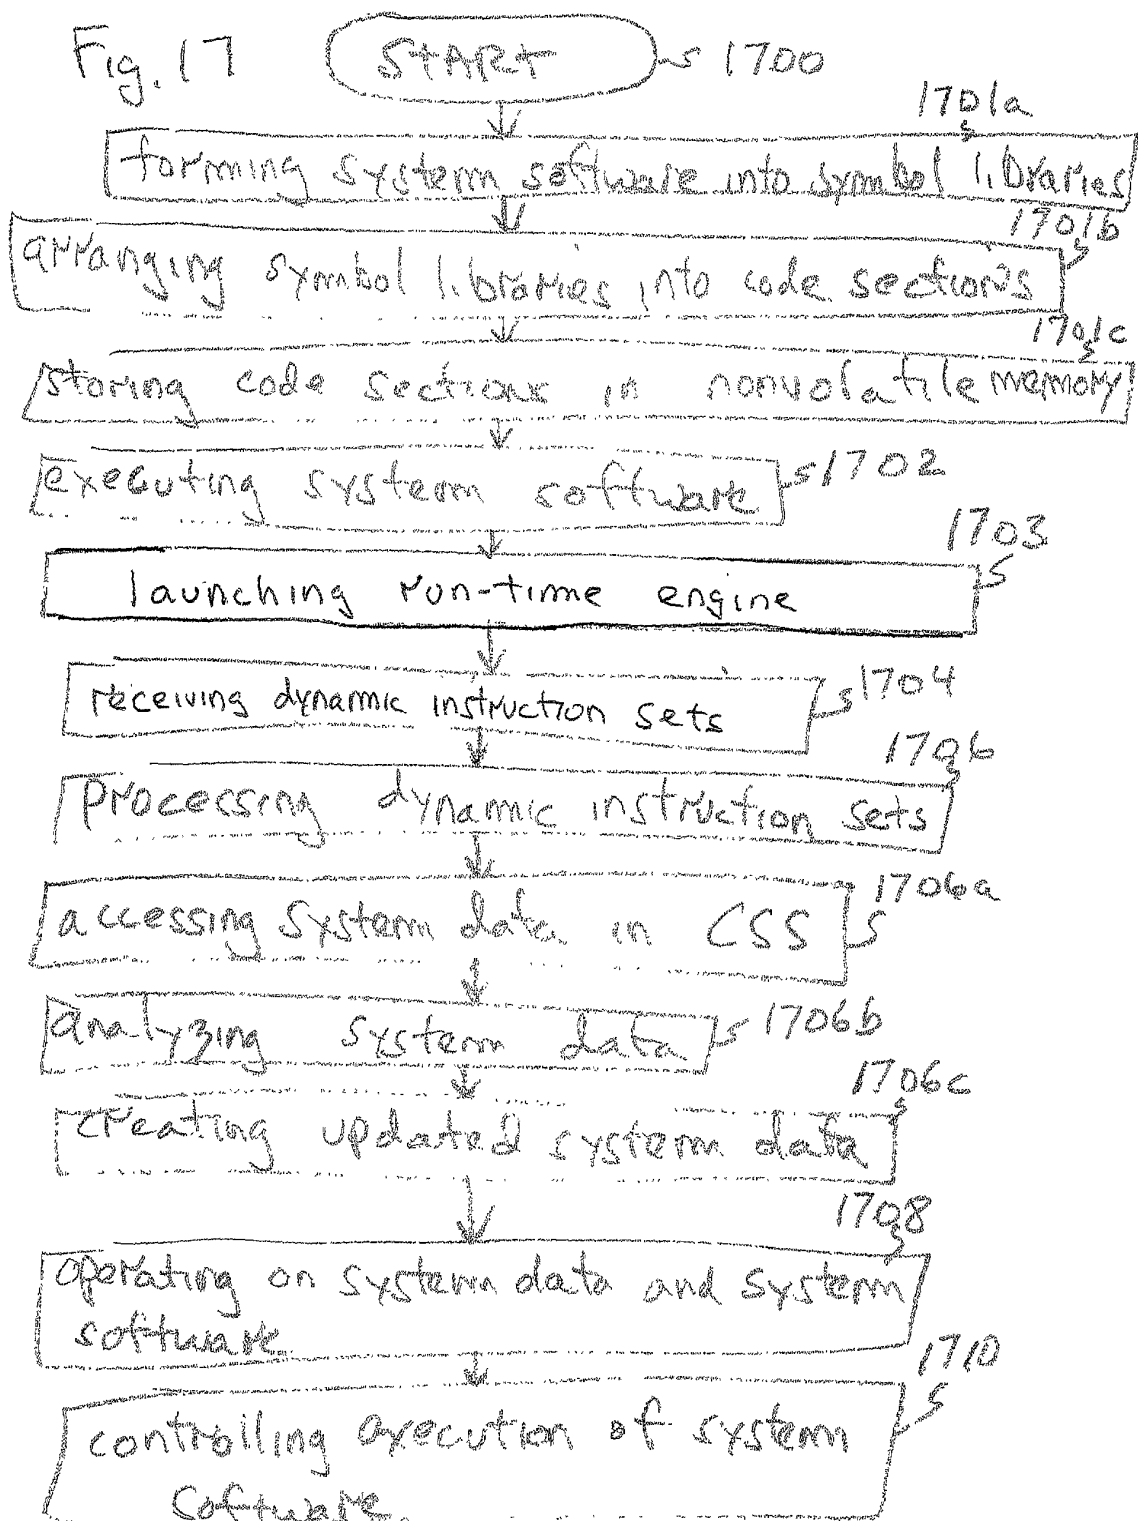 Fig. 17 START 1700
1701a
forming system software into symbol libraries
1701b
arranging symbol libraries into code sections
1701c
storing code sections in nonvolatile memory
executing system software 1702
1703
launching run-time engine
receiving dynamic instruction sets 1704
1706
processing dynamic instruction sets
accessing system data in CSS 1706a
analyzing system data 1706b
1706c
creating updated system data
1708
operating on system data and system
software
1710
controlling execution of system
software